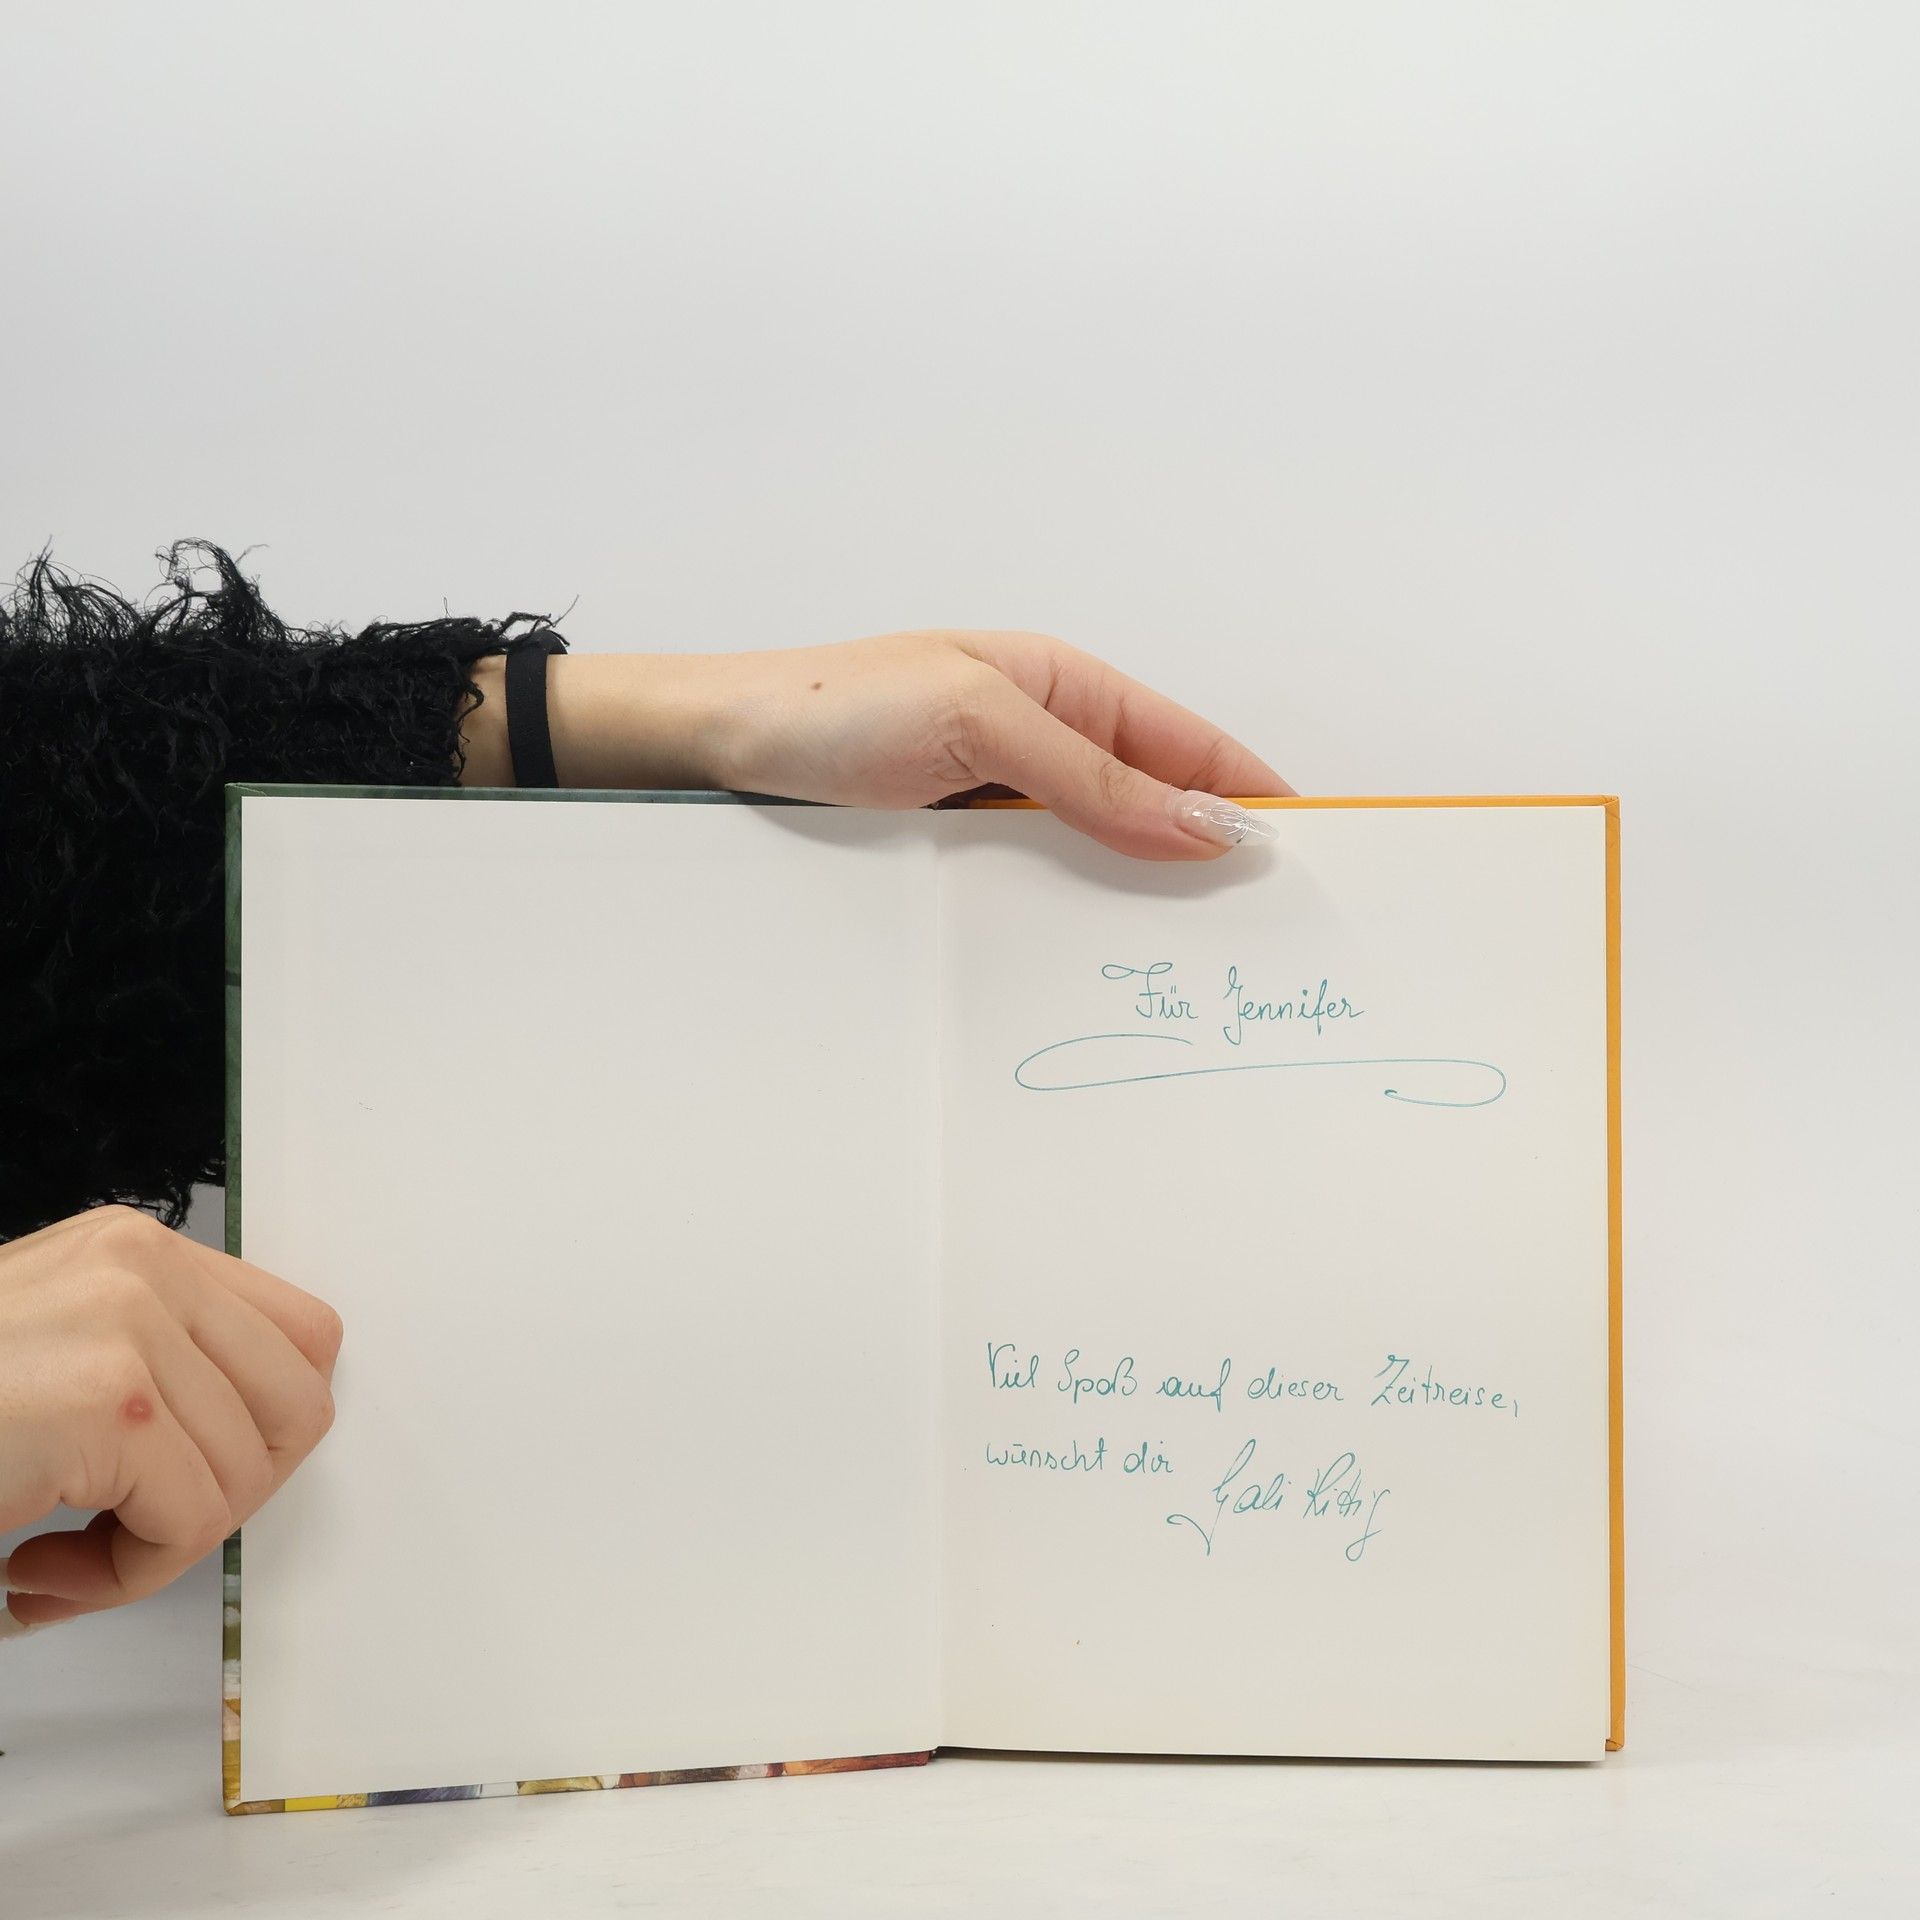 Für Jennifer
Viel Spaß auf dieser Zeitreise,
wünscht dir Gabi Rittig